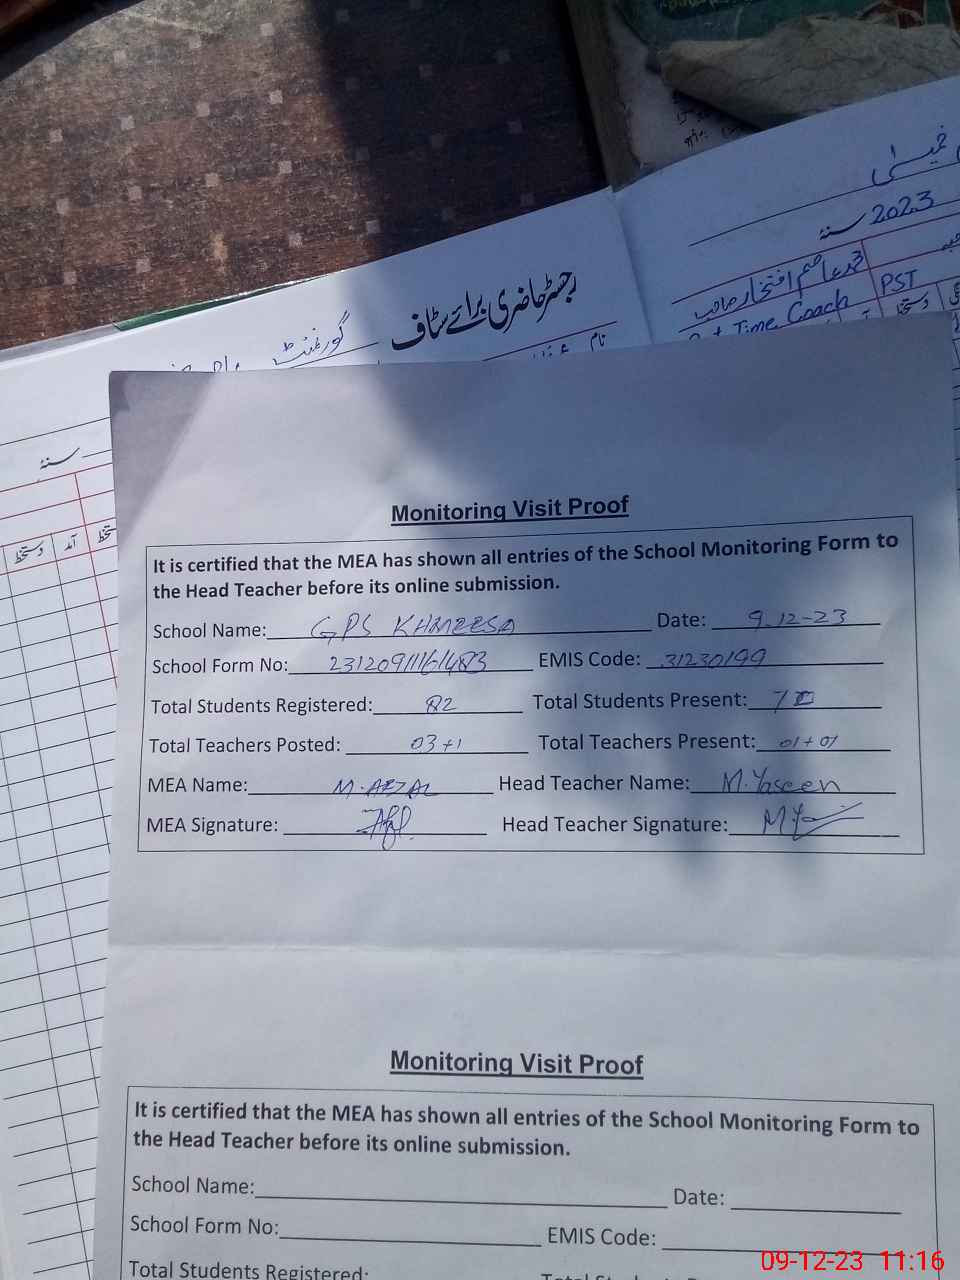 خمیسہ
2023 سنۂ
محمد عاصم افتخار صاحب
PST
Time Coach
رجسٹر حاضری برائے سٹاف
گورنمنٹ
نام
سنۂ
دستخط آمد دستخط
Monitoring Visit Proof
It is certified that the MEA has shown all entries of the School Monitoring Form to
the Head Teacher before its online submission.
School Name: GPS KHMEESA Date: 9.12-23
School Form No: EMIS Code: 31230199
Total Students Registered: 82 Total Students Present:
Total Teachers Posted: 03+1 Total Teachers Present: 01+01
MEA Name: M. AFZAL Head Teacher Name: M. Yaseen
MEA Signature: Head Teacher Signature:
Monitoring Visit Proof
It is certified that the MEA has shown all entries of the School Monitoring Form to
the Head Teacher before its online submission.
School Name: Date:
School Form No: EMIS Code:
Total Students Registered:
09-12-23 11:16